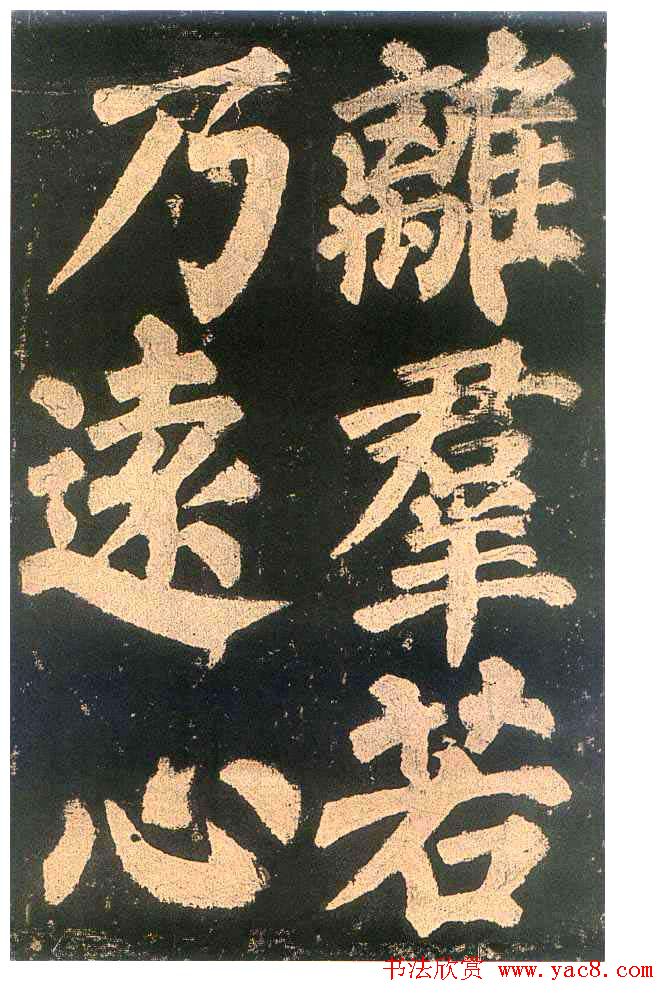 離羣若
乃遠心
书法欣赏 www.yac8.com